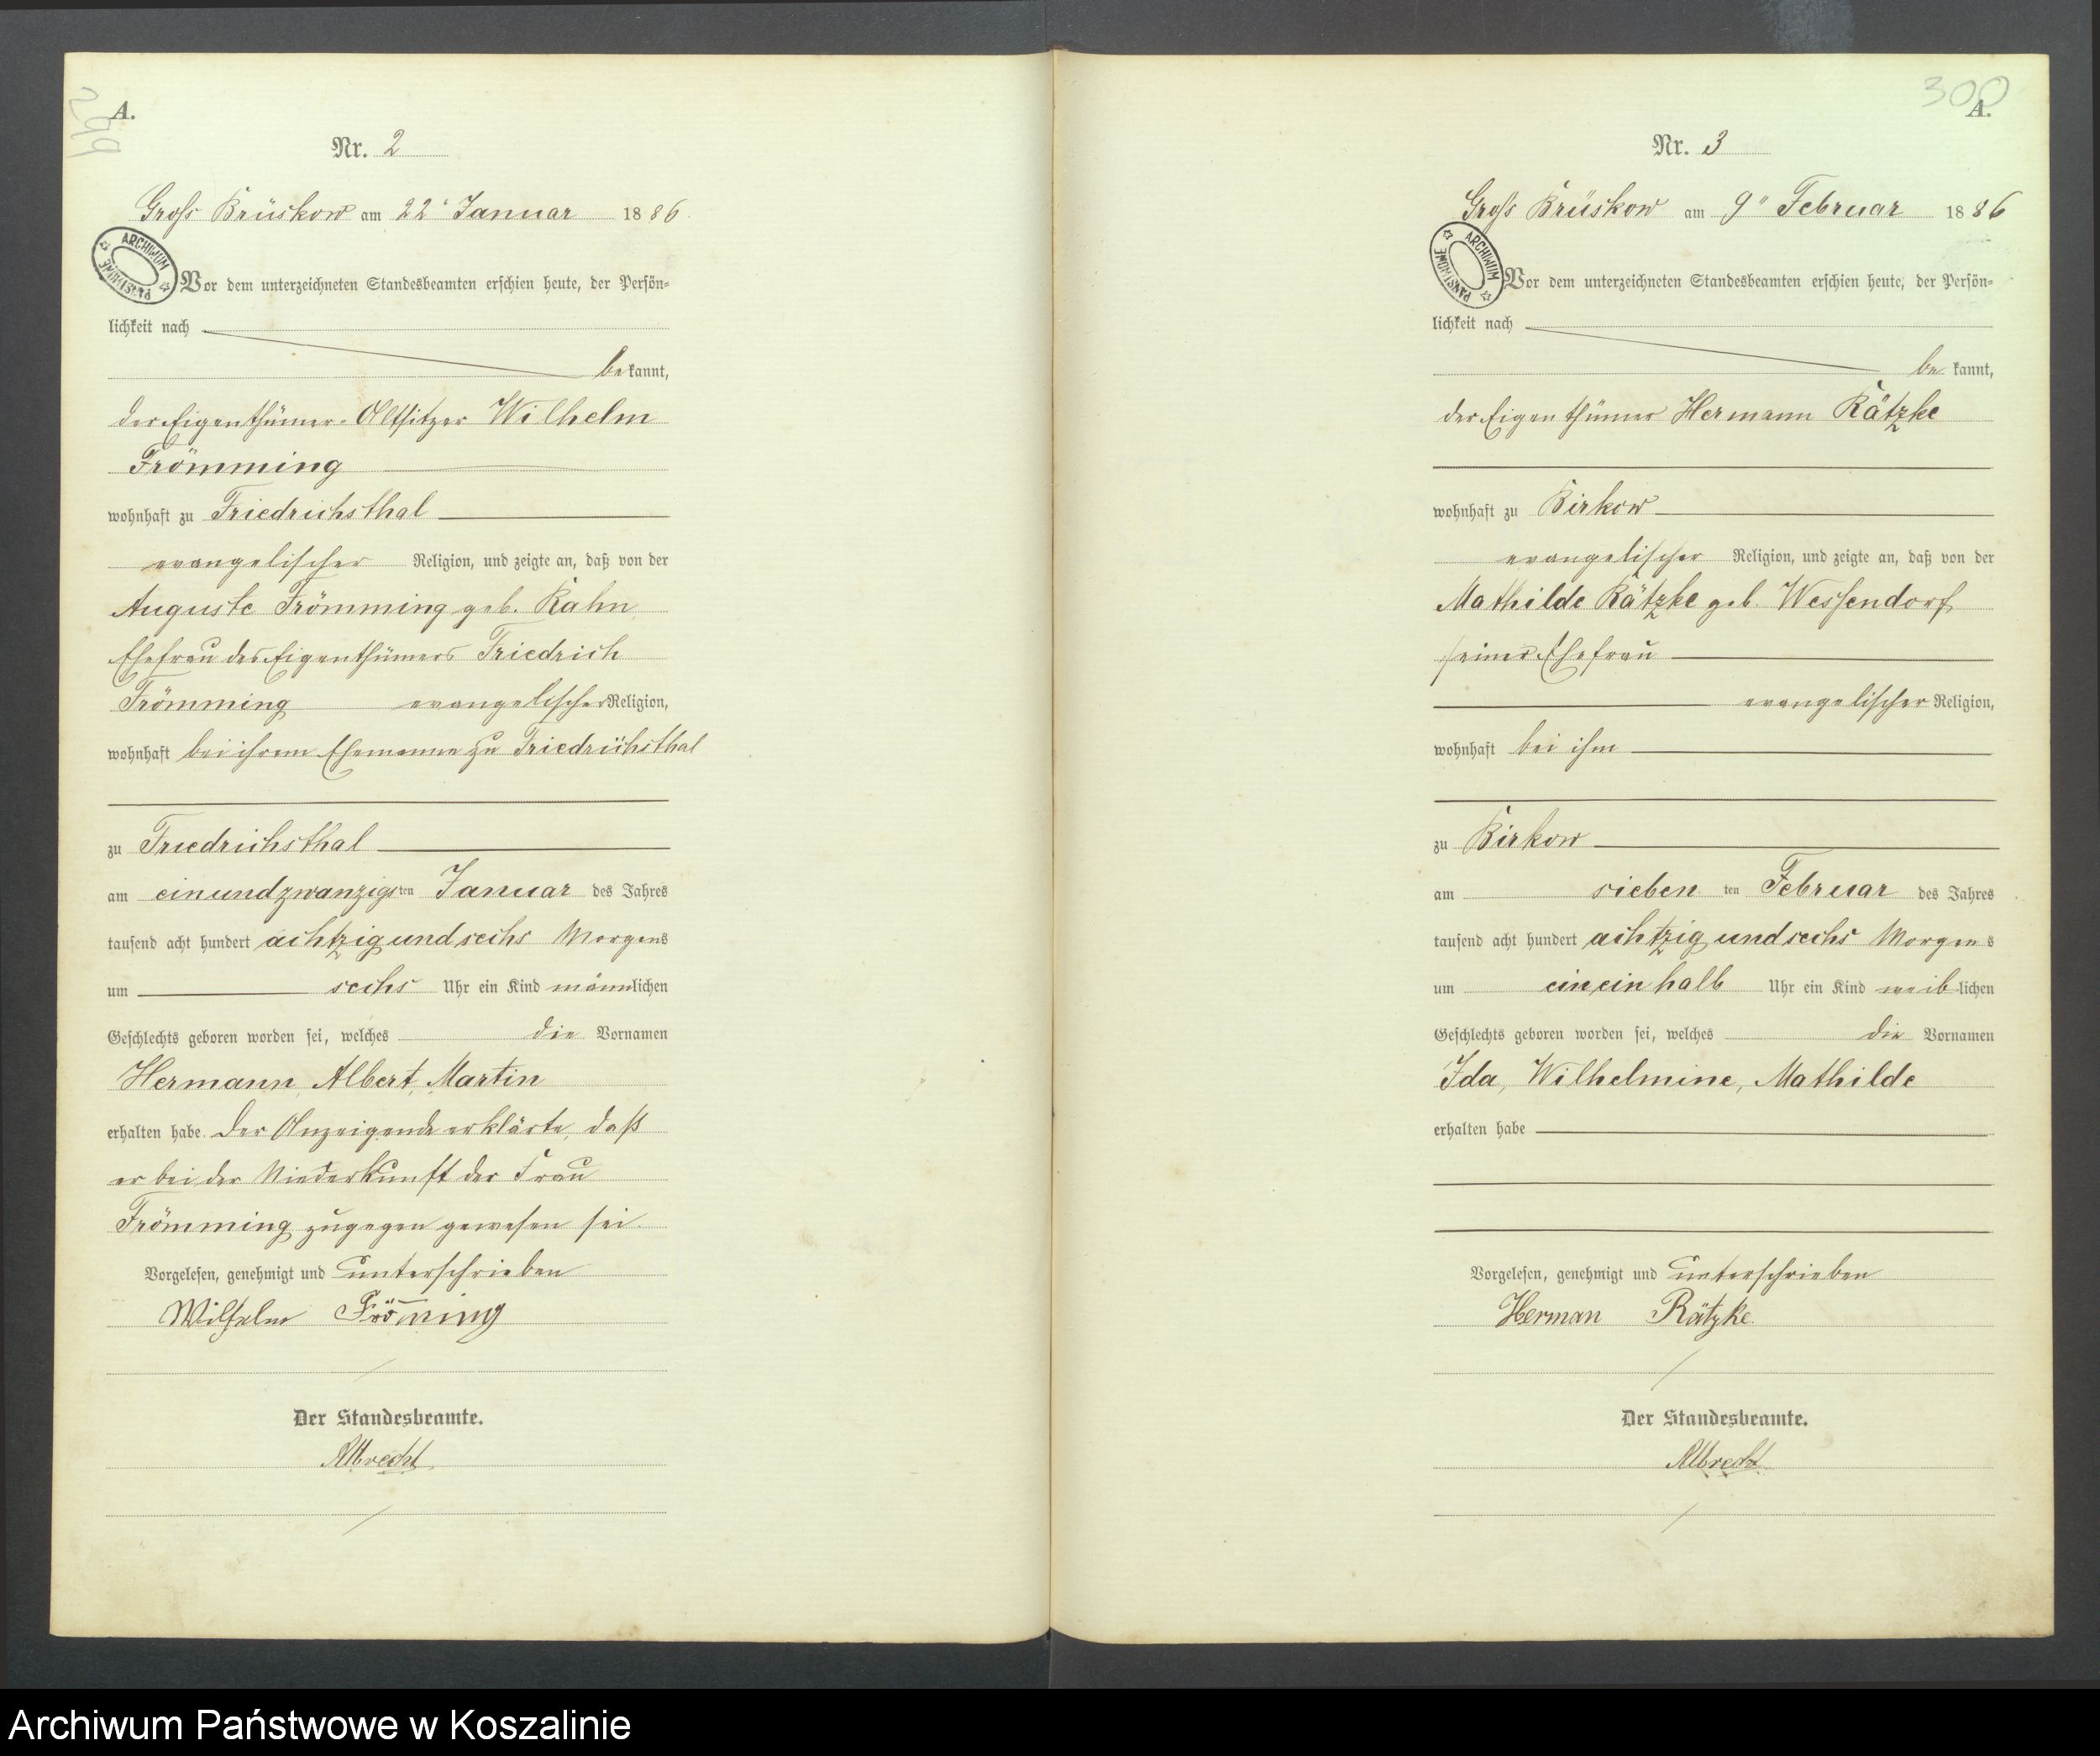 299
A.
Nr. 2
Groß Brüskow am 22ᵗ Januar 1886.
ARCHIWUM PAŃSTWOWE
Vor dem unterzeichneten Standesbeamten erschien heute, der Persön-
lichkeit nach
bekannt,
der Eigenthümer-Altsitzer Wilhelm
Frömming
wohnhaft zu Friedrichsthal
evangelischer Religion, und zeigte an, daß von der
Auguste Frömming geb. Kahn
Ehefrau des Eigenthümers Friedrich
Frömming evangelischer Religion,
wohnhaft bei ihrem Ehemanne zu Friedrichsthal
zu Friedrichsthal
am einundzwanzigsten Januar des Jahres
tausend acht hundert achtzig und sechs Morgens
um sechs Uhr ein Kind männlichen
Geschlechts geboren worden sei, welches die Vornamen
Hermann, Albert, Martin
erhalten habe. Der Anzeigende erklärte, daß
er bei der Niederkunft der Frau
Frömming zugegen gewesen sei.
Vorgelesen, genehmigt und unterschrieben
Wilhelm Fröming
Der Standesbeamte.
Albrecht.
300
A.
Nr. 3
Groß Brüskow am 9ᵗ Februar 1886
ARCHIWUM PAŃSTWOWE
Vor dem unterzeichneten Standesbeamten erschien heute, der Persön-
lichkeit nach
bekannt,
der Eigenthümer Hermann Rätzke
wohnhaft zu Birkow
evangelischer Religion, und zeigte an, daß von der
Mathilde Rätzke geb. Wessendorf
seiner Ehefrau
evangelischer Religion,
wohnhaft bei ihm
zu Birkow
am siebenten Februar des Jahres
tausend acht hundert achtzig und sechs Morgens
um ein ein halb Uhr ein Kind weiblichen
Geschlechts geboren worden sei, welches die Vornamen
Ida, Wilhelmine, Mathilde
erhalten habe
Vorgelesen, genehmigt und unterschrieben
Herman Rätzke
Der Standesbeamte.
Albrecht.
Archiwum Państwowe w Koszalinie